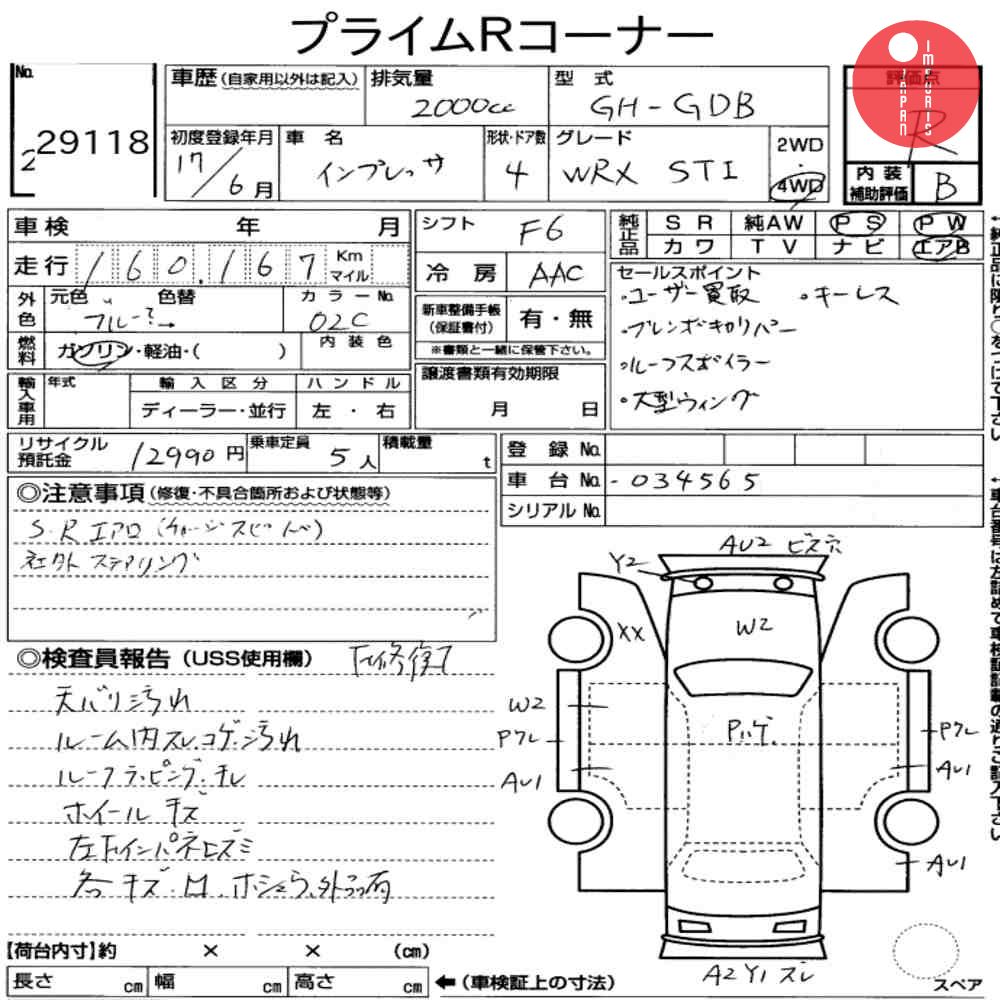 プライムRコーナー
No.
2 29118
車歴 (自家用以外は記入)
排気量
2000cc
型 式
GH-GDB
評価点
R
IMPORTS
JAPAN
初度登録年月
17/6月
車 名
インプレッサ
形状・ドア数
4
グレード
WRX STI
2WD
・
4WD
内装
補助評価
B
車検 年 月
走行 160,167 Km
マイル
シフト F6
冷房 AAC
純正品
SR 純AW PS PW
カワ TV ナビ エアB
外色
元色 色替
ブルー?→
カラーNo.
02C
燃料
ガソリン・軽油・( )
内装色
新車整備手帳
(保証書付)
有・無
※書類と一緒に保管下さい。
セールスポイント
・ユーザー買取 ・キーレス
・ブレンボキャリパー
・ルーフスポイラー
・大型ウィング
輸入車用
年式
輸入区分
ハンドル
ディーラー・並行
左・右
譲渡書類有効期限
月 日
リサイクル
預託金
12990円
乗車定員
5人
積載量
t
登録No.
車台No. -034565
シリアルNo.
◎注意事項 (修復・不具合箇所および状態等)
S.Rエアロ (チャージスピード)
社外ステアリング
◎検査員報告 (USS使用欄)
天バリ汚れ
ルーム内スレ.コゲ.汚れ
ルーフラッピング.チレ
ホイールキズ
各キズ.凹.
AU2 ビス穴
Y2
XX
W2
W2
Pハゲ
Pワレ
Pワレ
AU1
AU1
AU1
A2Y1 ズレ
スペア
【荷台内寸】約 × × (cm)
長さ cm 幅 cm 高さ cm
←(車検証上の寸法)
←純正品に限り○をつけて下さい
←車台番号は左詰めで車検証記載の通りご記入下さい